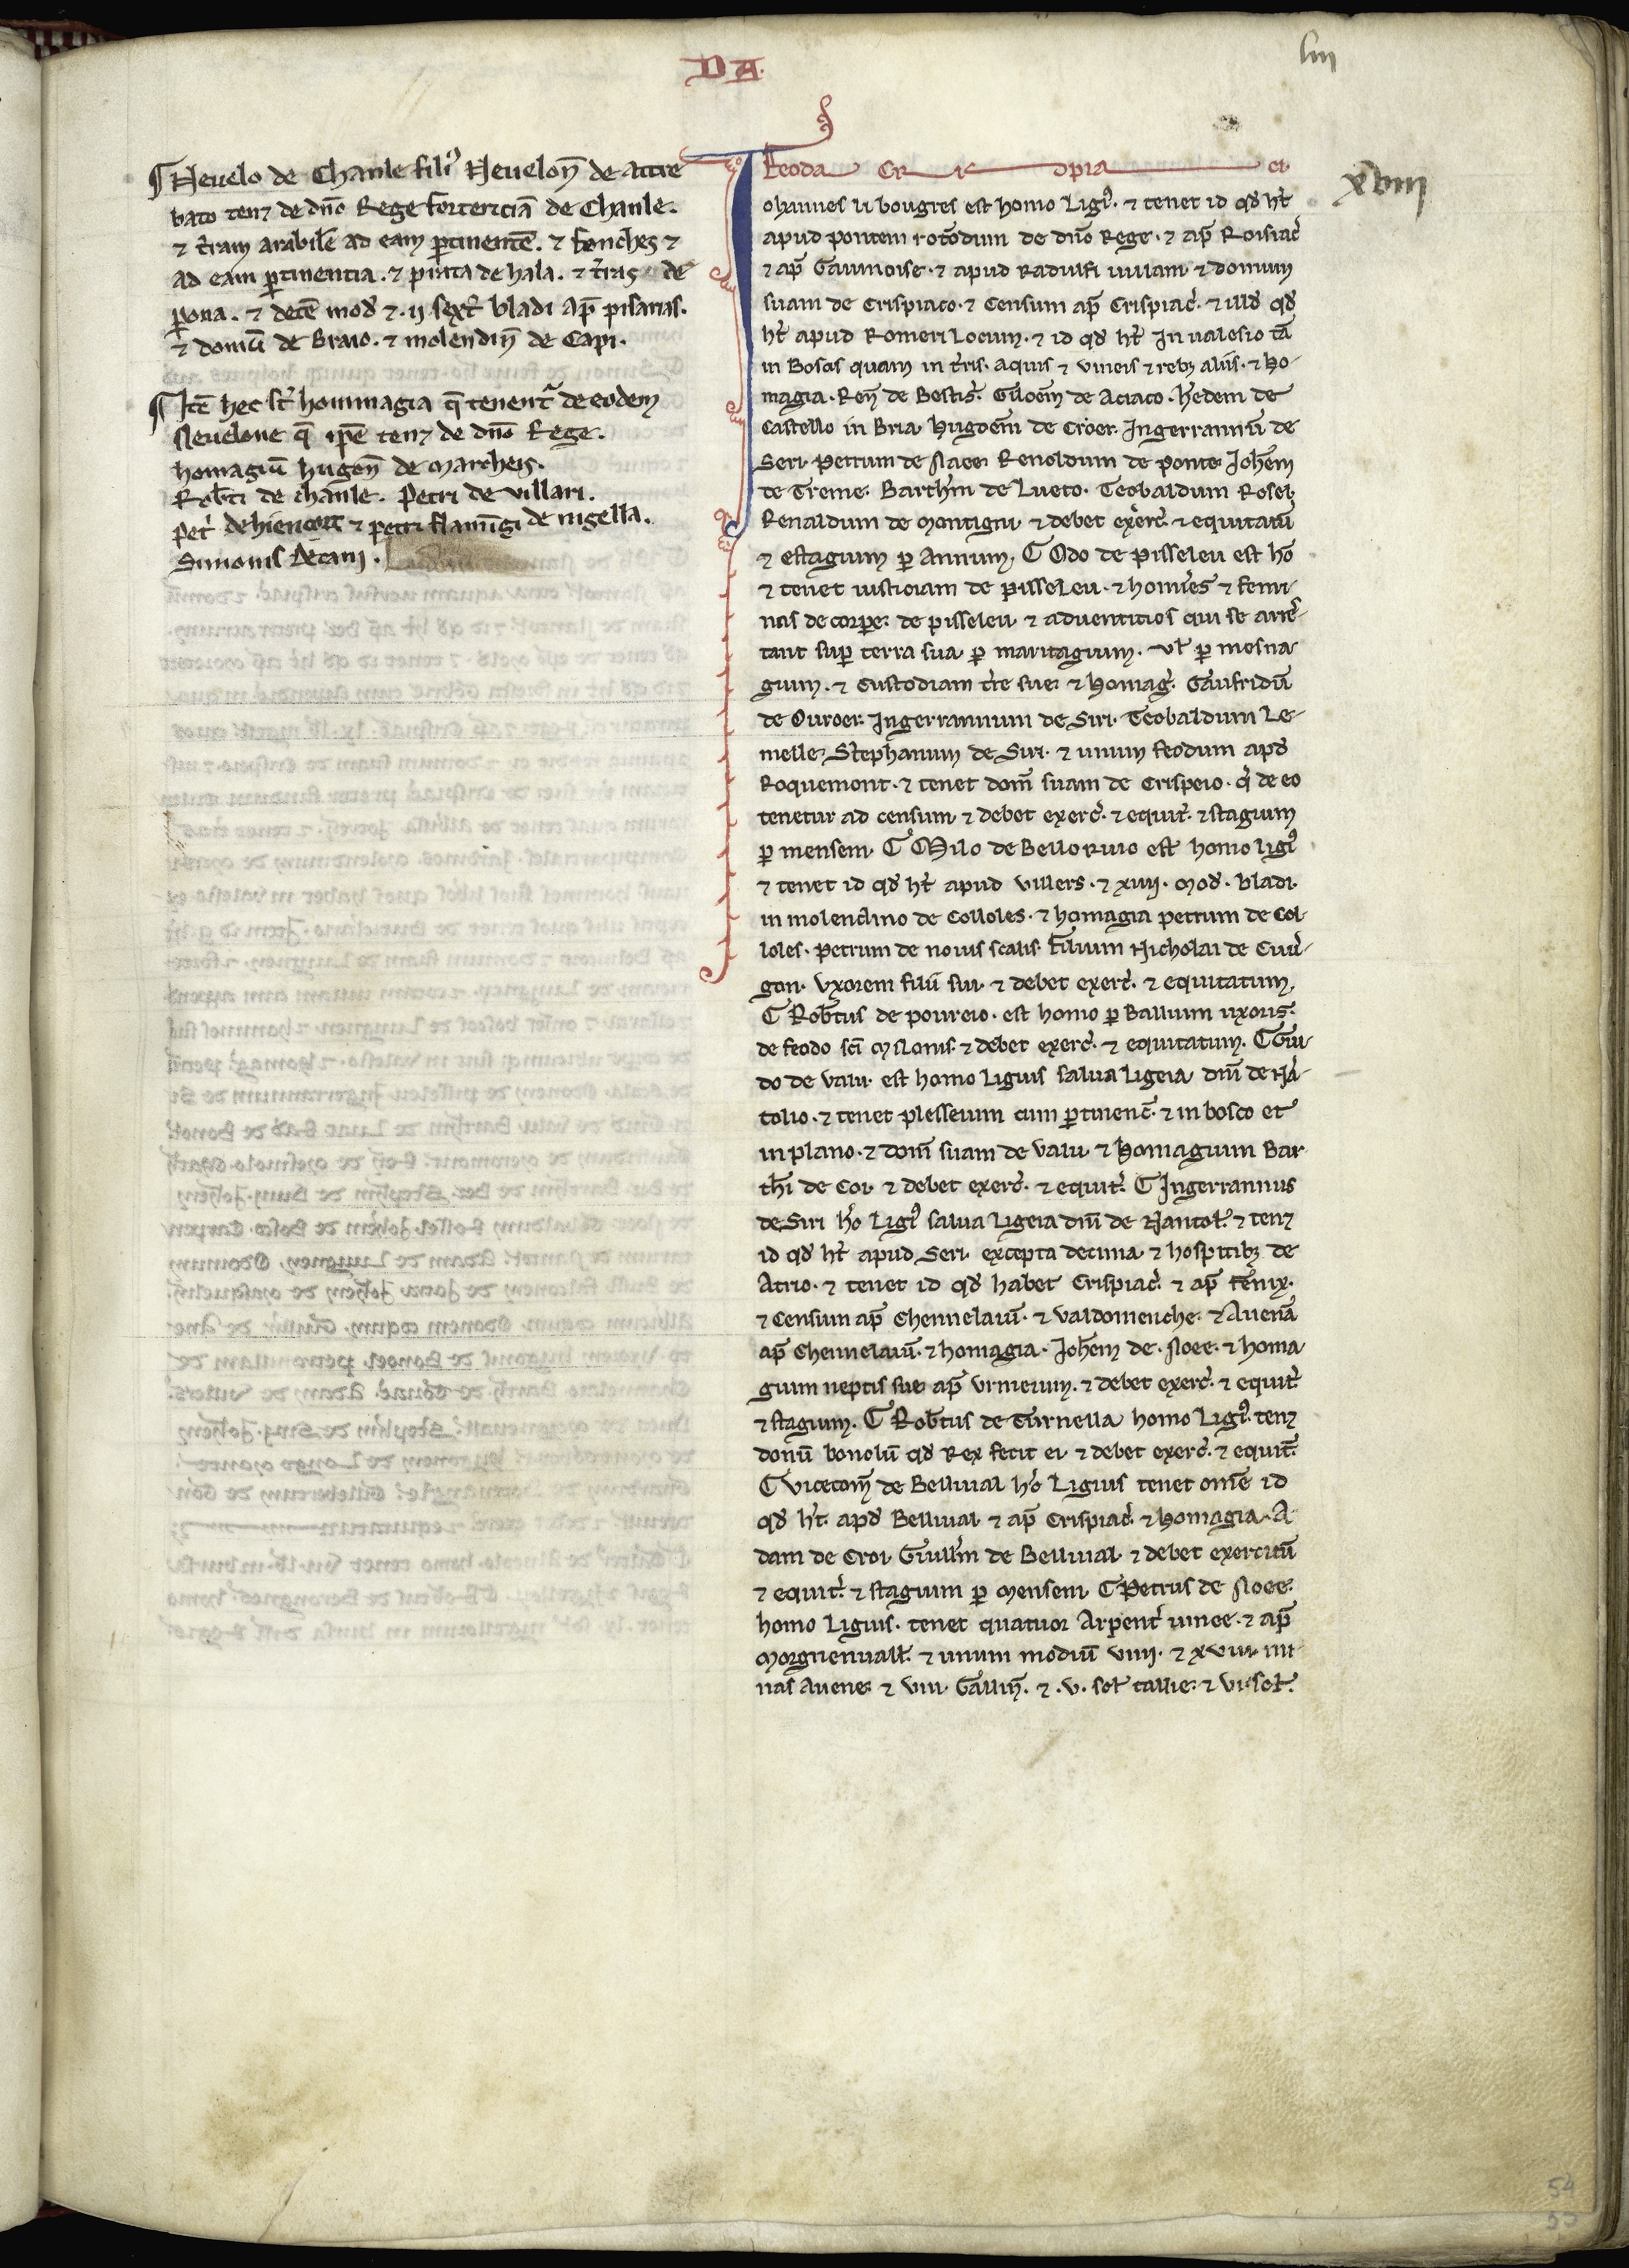 D A.
liii
¶ Neuelo de Chanle fili᷒ Neuelon̄ de attre
bato tenꝫ de dn̄o Rege fortericiā de Chanle.
⁊ t̄ram arabilē ad eam ꝑtinentē. ⁊ fenches ⁊
ad eam ꝑtinentia. ⁊ de hala. ⁊ t̄ras de
ꝑona. ⁊ decē mod̄ ⁊ .ii. sext̄ bladi ap̄ pisarias.
⁊ domū de Braio. ⁊ molendin̄ de Capi.
¶ Itē hec st̄ hommagia q̄ tenent᷑ de eodem
Neuelone q̄ ip̄e tenꝫ de dn̄o Rege.
homagiū hugon̄ de Marcheis.
Rob̄ti de chanle. Petri de villari.
Pet̄ de hiencort ⁊ petri flamīgi de nigella.
Simonis
Feoda Cr is dpia ci
xviii
Iohannes li bougres est homo Ligi᷒. ⁊ tenet id qd̄ ht̄
apud pontem rotōdum de dn̄o Rege. ⁊ ap̄ Roisiac̄
⁊ ap̄ Gaunoise. ⁊ apud Radulfi uillam ⁊ domum
suam de Crispiaco. ⁊ Censum ap̄ Crispiac̄. ⁊ illd̄ qd̄
ht̄ apud Romeri Locum. ⁊ id qd̄ ht̄ In ualesio tā
in Boscis quam in t̄ris. aquis ⁊ uineis ⁊ rebꝫ aliis. ⁊ ho-
magia. Ren̄ de Bestis̄. Giloēm de Aciaco. hedem de
Castello in Bria hugōem de Croer. Ingerrannū de
Seri. Petrum de Naee. Renoldum de ponte. Joh̄em
de Treme. Barth̄m de Lueto. Teobaldum Rosel.
Renaldum de Montigni. ⁊ debet exerc̄. ⁊ equitatū
⁊ estagium ꝑ Annum. ¶ Odo de Pisseleu est hō
⁊ tenet iusticiam de pisseleu. ⁊ homīes ⁊ femi-
nas de corꝑe de pisseleu ⁊ aduenticios qui se arrē-
tant sup̄ terra sua ꝑ maritagium. ul̄ ꝑ mesna-
gium. ⁊ Custodiam t̄re sue ⁊ homaḡ. Gaufridū
de Ouroer. Ingerrannum de Siri. Teobaldum Le-
melle. Stephanum de Siri. ⁊ unum feodum apd̄
Roquemont. ⁊ tenet dom̄ suam de Crispeio. q̄ de eo
tenetur ad censum ⁊ debet exerc̄. ⁊ equit̄. ⁊ stagium
ꝑ mensem. ¶ Milo de Belloriuio est homo ligi᷒
⁊ tenet id qd̄ ht̄ apud villers. ⁊ xiiij. Mod̄. bladi.
in molendino de Colloles. ⁊ homagia petrum de Col-
loles. Petrum de nouis scalis. filium Nicholai de Cuui-
gon. Vxorem filii sui. ⁊ debet exerc̄. ⁊ equitatum.
¶ Rob̄tus de poureio. est homo ꝑ Ballium uxoris.
de feodo sc̄i Milonis. ⁊ debet exerc̄. ⁊ equitatum. ¶ Gui-
do de Valu. est homo Ligius salua Ligeia dn̄i de Nā-
tolio. ⁊ tenet plesseium cum ꝑtinenc̄. ⁊ in bosco et
in plano. ⁊ dom̄ suam de Valu ⁊ homagium Bar
th̄i de Cor. ⁊ debet exerc̄. ⁊ equit̄. ¶ Ingerrannus
de Siri hō Ligi᷒ salua Ligeia dn̄i de Nantol̄. ⁊ tenꝫ
id qd̄ ht̄ apud Seri. excepta decima ⁊ hospitibꝫ de
Atrio. ⁊ tenet id qd̄ habet Crispiac̄. ⁊ ap̄ fenix.
⁊ Censum ap̄ Chennelaiū. ⁊ Valdomenche. ⁊ Auenā
ap̄ Chennelaiū. ⁊ homagia. Joh̄em de. Noee. ⁊ homa
gium neptis sue ap̄ Vrmeium. ⁊ debet exerc̄. ⁊ equit̄
⁊ stagium. ¶ Rob̄tus de Turnella homo Ligi᷒. tenꝫ
donū bonolii qd̄ Rex fecit ei. ⁊ debet exerc̄. ⁊ equit̄.
¶ Vicecom̄ de Belliual hō Ligius tenet om̄e id
qd̄ ht̄. apd̄ Belliual ⁊ ap̄ Crispiac̄. ⁊ homagia. A-
dam de Croi. Guill̄m de Belliual. ⁊ debet exercitū
⁊ equit̄. ⁊ stagium ꝑ mensem. ¶ Petrus de Noee.
homo Ligius. tenet quatuor Arpent̄ uinee. ⁊ ap̄
Morgneuall̄. ⁊ unum modiū viiij. ⁊ xviii. mi-
nas Auene. ⁊ viii. Gallin̄. ⁊ .v. sol̄ tallie. ⁊ vi. sol̄.
54